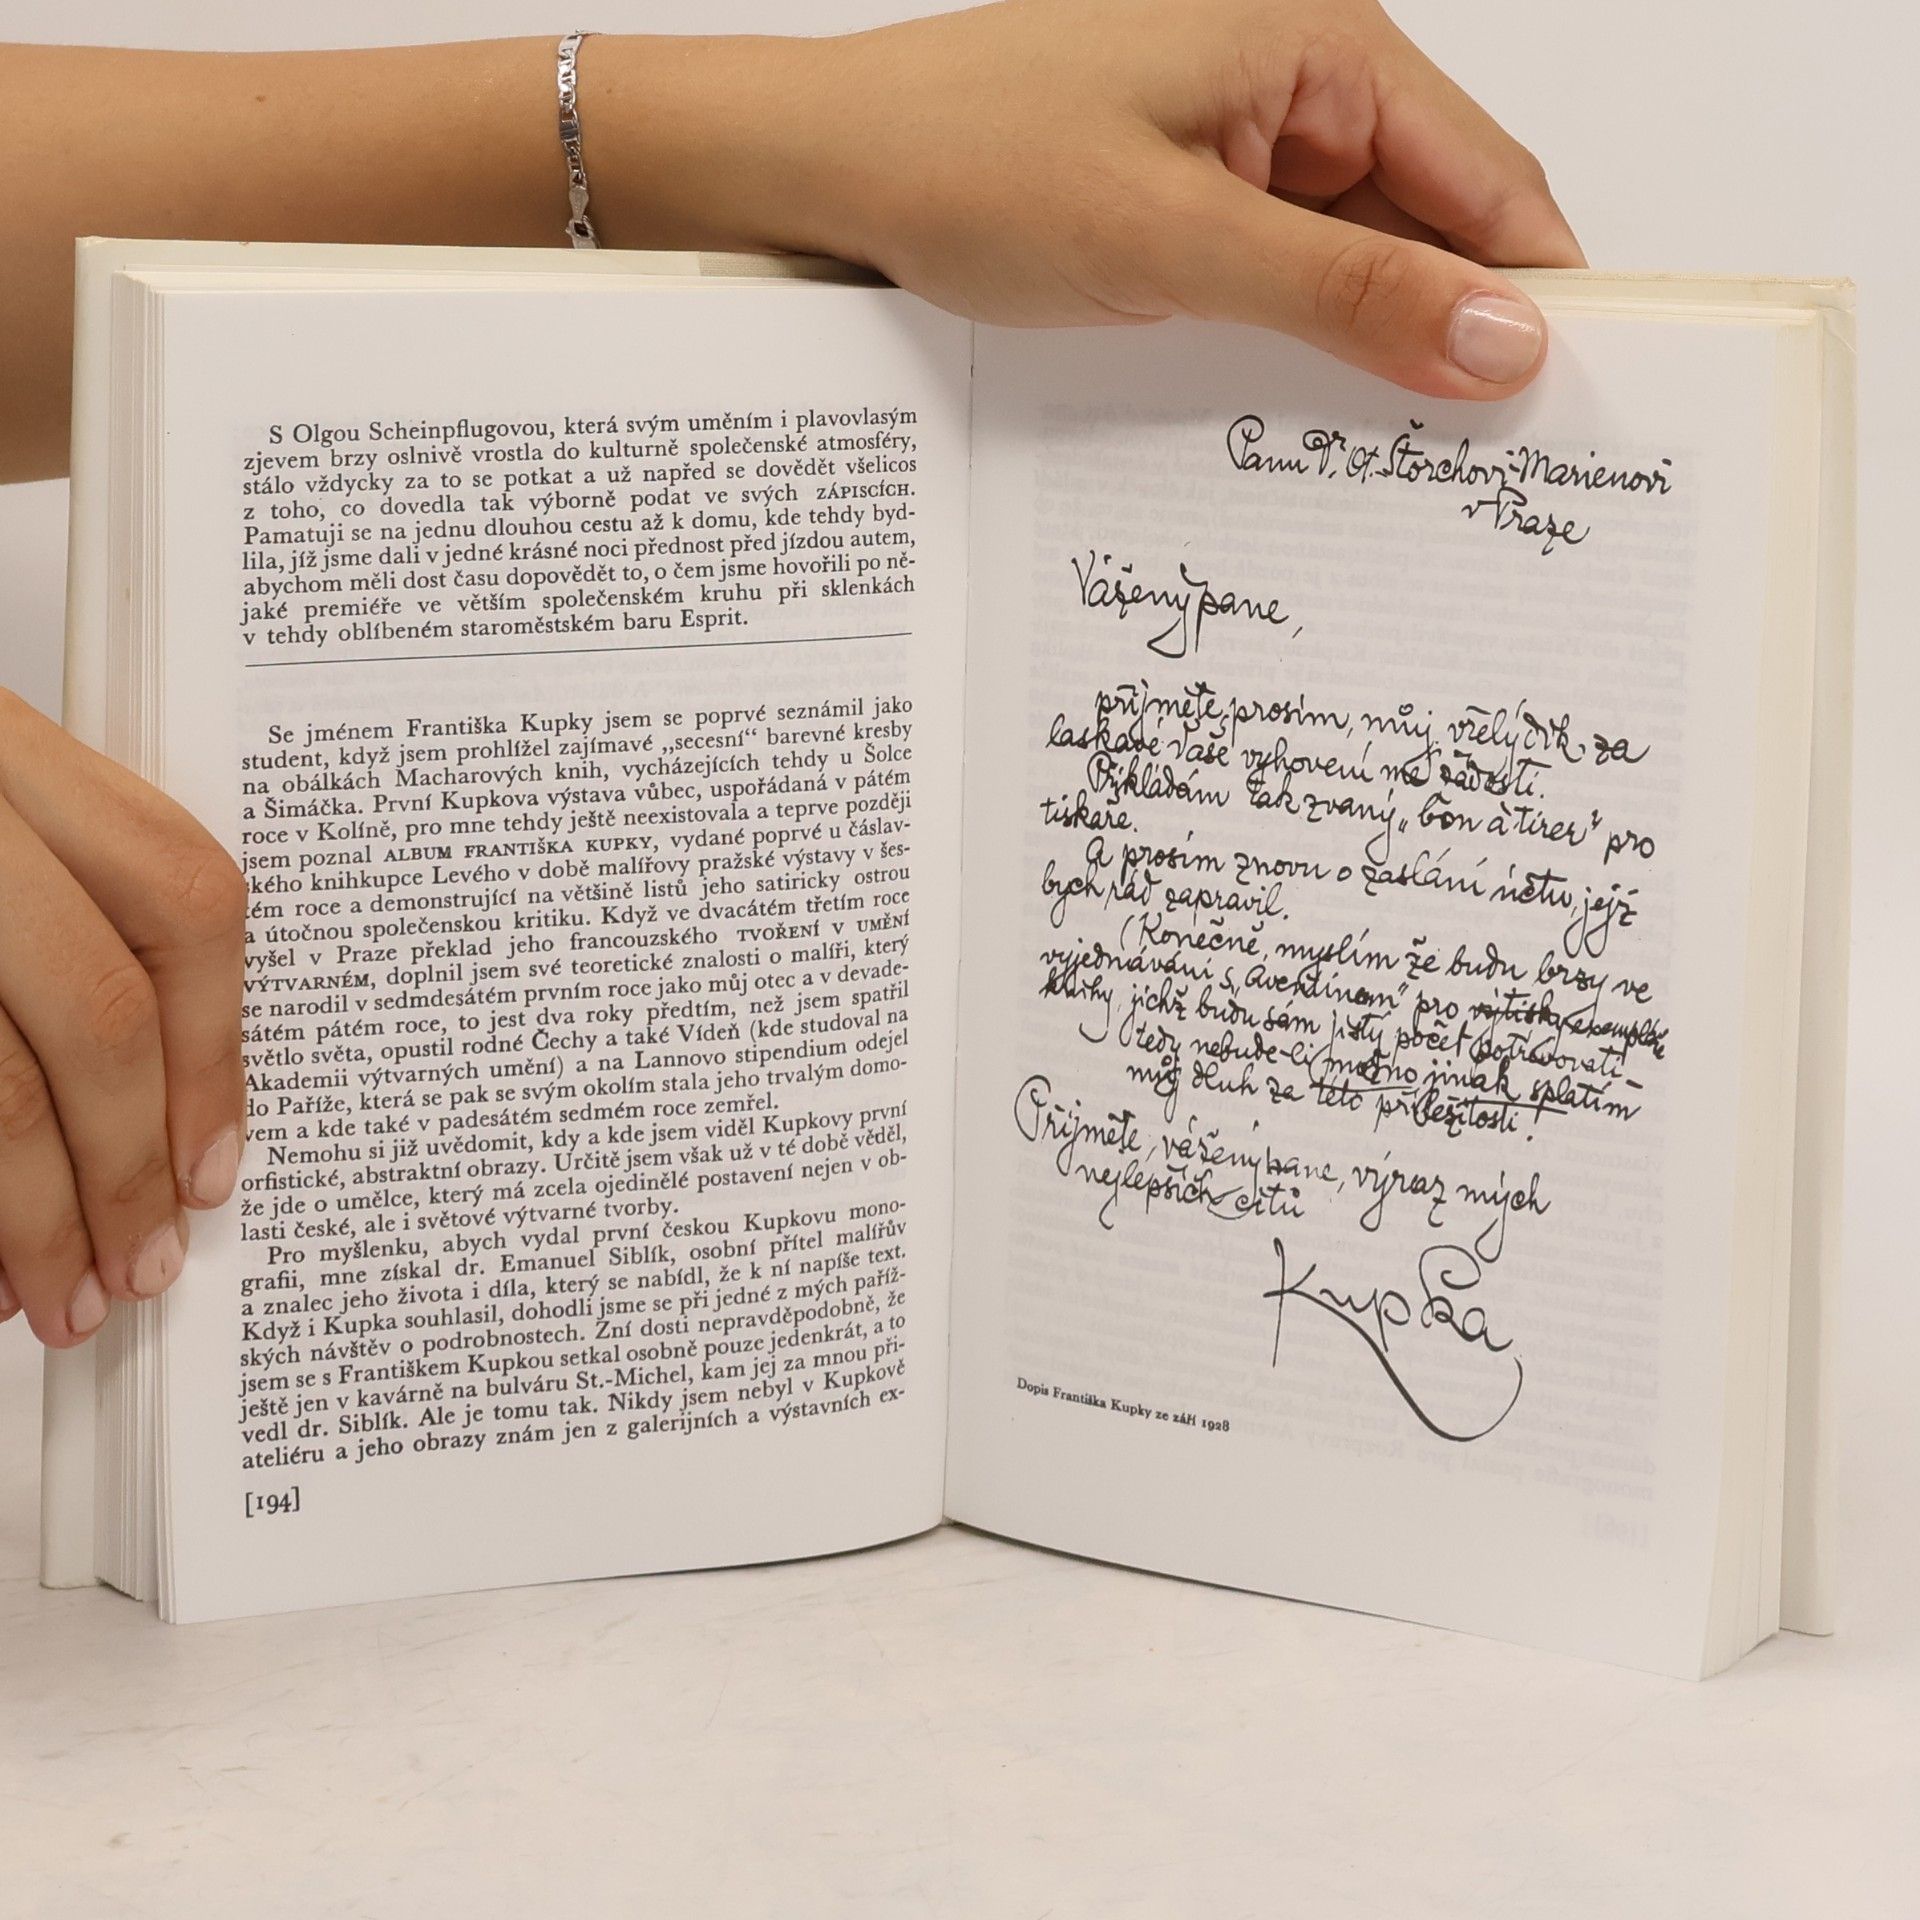 S Olgou Scheinpflugovou, která svým uměním i plavovlasým
zjevem brzy oslnivě vrostla do kulturně společenské atmosféry,
stálo vždycky za to se potkat a už napřed se dovědět všelicos
z toho, co dovedla tak výborně podat ve svých ZÁPISCÍCH.
Pamatuji se na jednu dlouhou cestu až k domu, kde tehdy byd-
lila, jíž jsme dali v jedné krásné noci přednost před jízdou autem,
abychom měli dost času dopovědět to, o čem jsme hovořili po ně-
jaké premiéře ve větším společenském kruhu při sklenkách
v tehdy oblíbeném staroměstském baru Esprit.
Se jménem Františka Kupky jsem se poprvé seznámil jako
student, když jsem prohlížel zajímavé „secesní“ barevné kresby
na obálkách Macharových knih, vycházejících tehdy u Šolce
a Šimáčka. První Kupkova výstava vůbec, uspořádaná v pátém
roce v Kolíně, pro mne tehdy ještě neexistovala a teprve později
jsem poznal ALBUM FRANTIŠKA KUPKY, vydané poprvé u čáslav-
ského knihkupce Levého v době malířovy pražské výstavy v šes-
tém roce a demonstrující na většině listů jeho satiricky ostrou
a útočnou společenskou kritiku. Když ve dvacátém třetím roce
vyšel v Praze překlad jeho francouzského TVOŘENÍ V UMĚNÍ
VÝTVARNÉM, doplnil jsem své teoretické znalosti o malíři, který
se narodil v sedmdesátém prvním roce jako můj otec a v devade-
sátém pátém roce, to jest dva roky předtím, než jsem spatřil
světlo světa, opustil rodné Čechy a také Vídeň (kde studoval na
Akademii výtvarných umění) a na Lannovo stipendium odejel
do Paříže, která se pak se svým okolím stala jeho trvalým domo-
vem a kde také v padesátém sedmém roce zemřel.
Nemohu si již uvědomit, kdy a kde jsem viděl Kupkovy první
orfistické, abstraktní obrazy. Určitě jsem však už v té době věděl,
že jde o umělce, který má zcela ojedinělé postavení nejen v ob-
lasti české, ale i světové výtvarné tvorby.
Pro myšlenku, abych vydal první českou Kupkovu mono-
grafii, mne získal dr. Emanuel Siblík, osobní přítel malířův
a znalec jeho života i díla, který se nabídl, že k ní napíše text.
Když i Kupka souhlasil, dohodli jsme se při jedné z mých paříž-
ských návštěv o podrobnostech. Zní dosti nepravděpodobně, že
jsem se s Františkem Kupkou setkal osobně pouze jedenkrát, a to
ještě jen v kavárně na bulváru St.-Michel, kam jej za mnou při-
vedl dr. Siblík. Ale je tomu tak. Nikdy jsem nebyl v Kupkově
ateliéru a jeho obrazy znám jen z galerijních a výstavních ex-
[194]
Panu Dr. Ot. Štorchovi-Marienovi
v Praze
Vážený pane,
přijměte, prosím, můj vřelý dík za
laskavé Vaše vyhovení mé žádosti.
Přikládám tak zvaný „bon à tirer“ pro
tiskaře.
A prosím znovu o zaslání účtu, jejž
bych rád zapravil.
(Konečně, myslím že budu brzy ve
vyjednávání s „Aventinem“ pro výtisky exempláře
knihy, jichž budu sám jistý počet potřebovati –
tedy nebude-li možno jinak splatím
můj dluh za této příležitosti!
Přijměte, vážený pane, výraz mých
nejlepších citů
Kupka
Dopis Františka Kupky ze září 1928